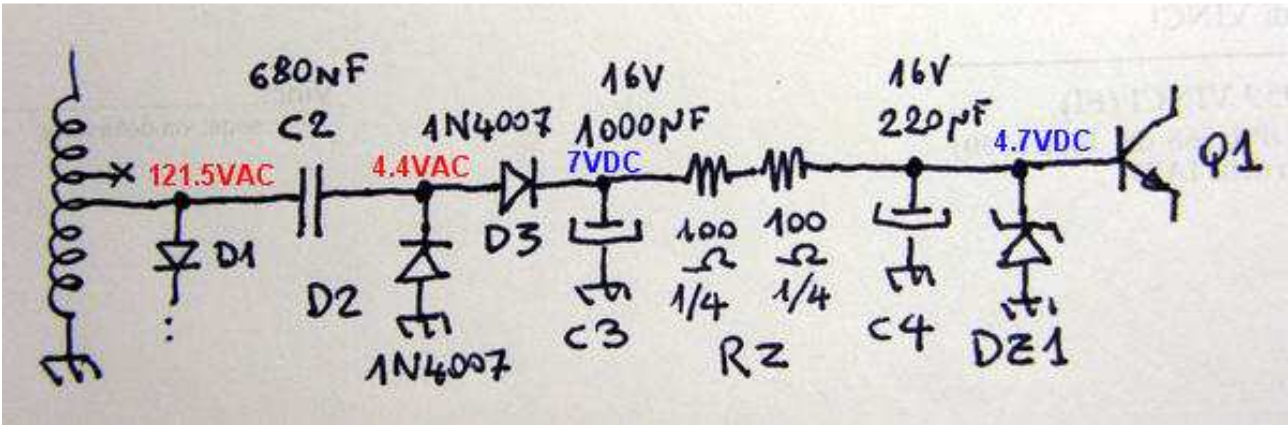 680NF
C2
1N4007
16V
1000µF
16V
220µF
121.5VAC
4.4VAC
7VDC
4.7VDC
Q1
D1
D2
1N4007
D3
C3
100
Ω
1/4
100
Ω
1/4
RZ
C4
DZ1